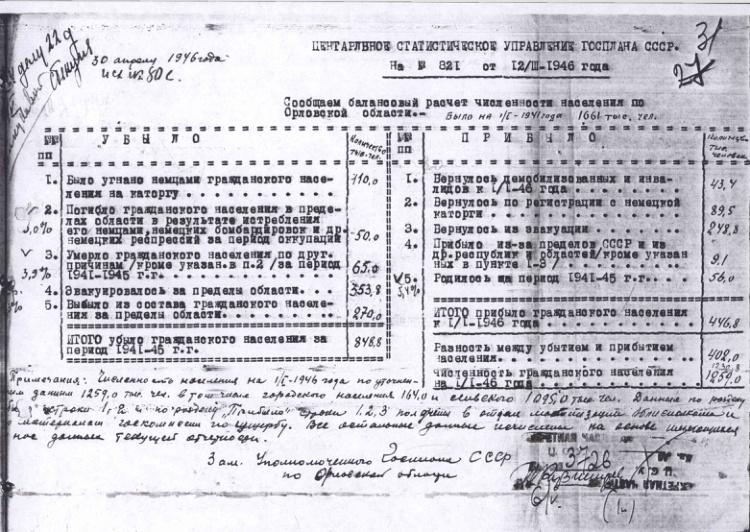 31
27
30 апреля 1946 года
ЦЕНТАРЛЬНОЕ СТАТИСТИЧЕСКОЕ УПРАВЛЕНИЕ ГОСПЛАНА СССР.
На № 821 от 12/III-1946 года
Сообщаем балансовый расчет численности населения по
Орловской области.- Было на 1/I-1941 года 1661 тыс. чел.
№№ пп
У Б Ы Л О
Количество тыс. чел.
1. Было угнано немцами гражданского насе-
ления на каторгу 710,0
2. Погибло гражданского населения в преде-
лах области в результате истребления
его немцами, немецких бомбардировок и др.
немецких респрессий за период оккупации 50.0
3,0%
3. Умерло гражданского населения по друг.
причинам /кроме указан. в п.2 / за период
1941-1945 г.г. 65.0
3,9%
4. Эвакуировалось за пределы области 353,8
5. Выбыло из состава гражданского населе-
ния за пределы области 270,0
ИТОГО убыло гражданского населения за
период 1941-45 г.г. 848,8
№№ пп
П Р И Б Ы Л О
Количес. тыс. человек
1. Вернулось демобилизованных и инва-
лидов к I/I-46 года 43,4
2. Вернулось по регистрации с немецкой
каторги 89,5
3. Вернулось из эвакуации 248,8
4. Прибыло из-за пределов СССР и из
др. республик и областей /кроме указан
ных в пункте 1-3/ 9.1
5. Родилось за период 1941-45 г.г. 56,0
3,4%
ИТОГО прибыло гражданского населения
к I/I-1946 года 446,8
Разность между убытием и прибытием
населения 402,0
Численность гражданского населения
на I/I-46 года 1259,0
Примечания: Численность населения на 1/I-1946 года по уточнен-
ным данным 1259,0 тыс. чел. в том числе городского населения 164,0 и сельского 1095,0 тыс. чел. Данные по
строки 1, 2 и по разделу "Прибыло" строки 1, 2, 3 получены в отделе и
материалам госкомиссии по ущербу. Все остальные данные исчислены на основе
данные текущей отчетности.
Зам. Уполномоченного Госплана СССР
по Орловской области
3726
(1.)